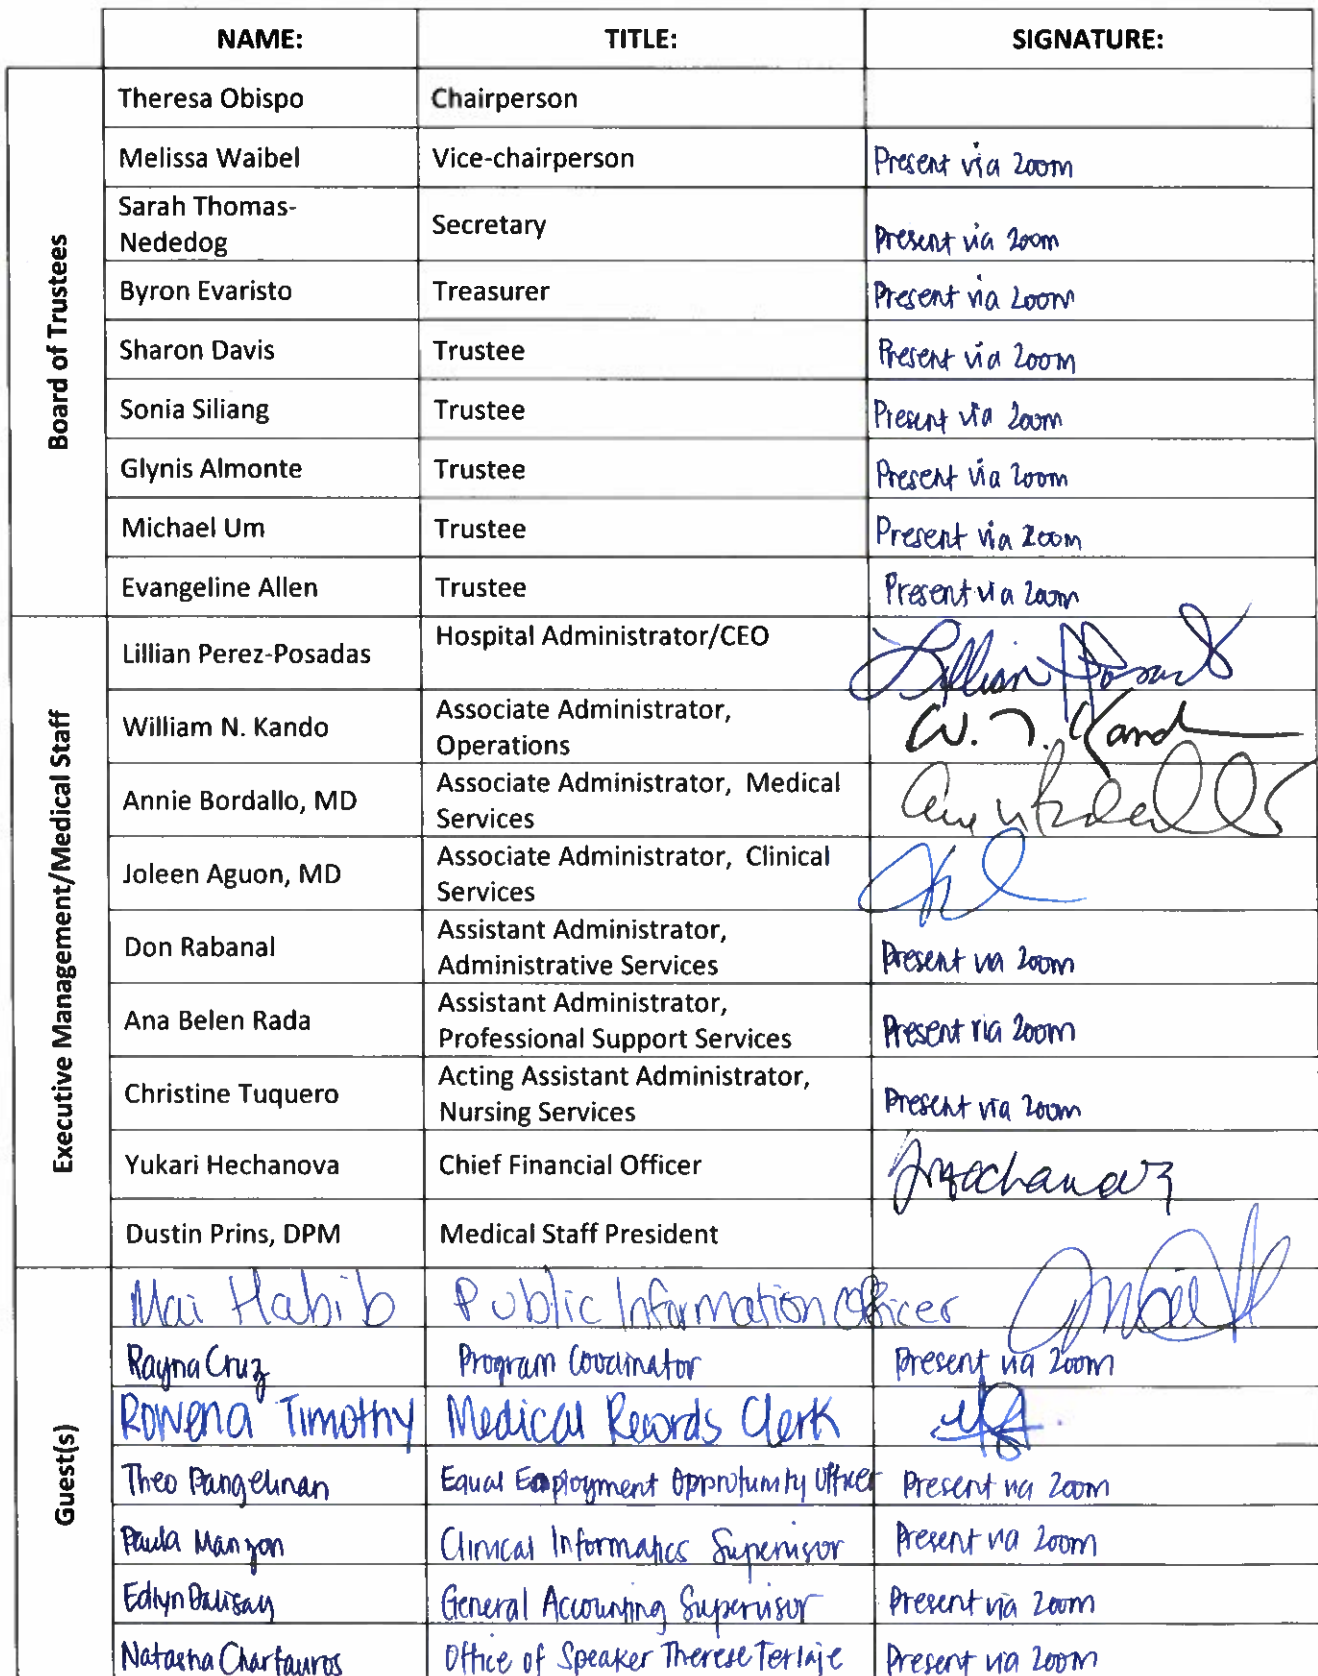 NAME: TITLE: SIGNATURE:
Board of Trustees
Theresa Obispo Chairperson
Melissa Waibel Vice-chairperson Present via Zoom
Sarah Thomas-
Nededog Secretary Present via Zoom
Byron Evaristo Treasurer Present via Zoom
Sharon Davis Trustee Present via Zoom
Sonia Siliang Trustee Present via Zoom
Glynis Almonte Trustee Present via Zoom
Michael Um Trustee Present via Zoom
Evangeline Allen Trustee Present via Zoom
Executive Management/Medical Staff
Lillian Perez-Posadas Hospital Administrator/CEO Lillian Posadas
William N. Kando Associate Administrator,
Operations W. N. Kando
Annie Bordallo, MD Associate Administrator, Medical
Services
Joleen Aguon, MD Associate Administrator, Clinical
Services
Don Rabanal Assistant Administrator,
Administrative Services Present via Zoom
Ana Belen Rada Assistant Administrator,
Professional Support Services Present via Zoom
Christine Tuquero Acting Assistant Administrator,
Nursing Services Present via Zoom
Yukari Hechanova Chief Financial Officer
Dustin Prins, DPM Medical Staff President
Guest(s)
Mai Habib Public Information Officer
Rayna Cruz Program Coordinator Present via Zoom
Rowena Timothy Medical Records Clerk
Theo Pangelinan Equal Employment Opprotunity Officer Present via Zoom
Paula Manzon Clinical Informatics Supervisor Present via Zoom
Edlyn Dalisay General Accounting Supervisor Present via Zoom
Natasha Charfauros Office of Speaker Therese Terlaje Present via Zoom